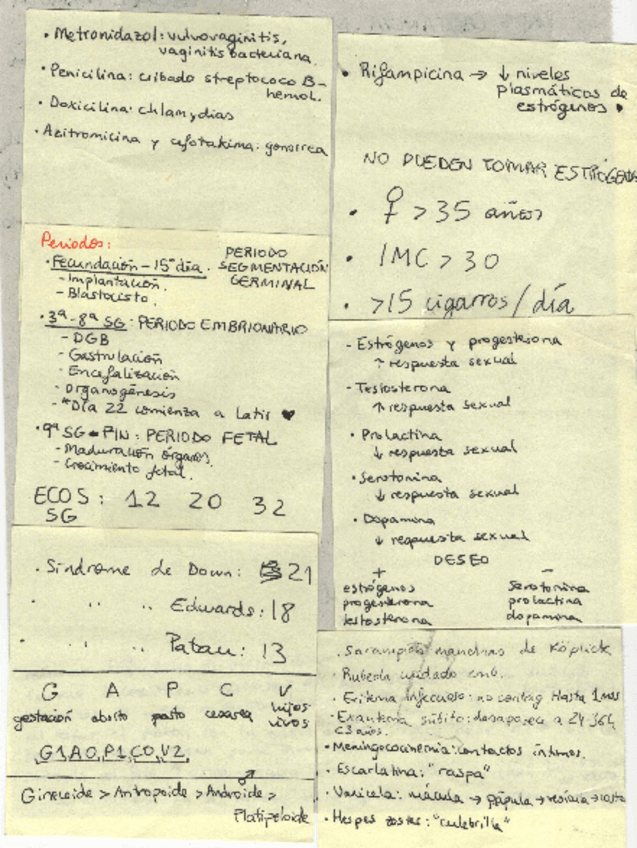 • Metronidazol: vulvovaginitis,
vaginitis bacteriana.
• Penicilina: cribado streptococo B-
hemol.
• Doxicilina: chlamydias
• Azitromicina y cefotaxima: gonorrea
Periodos:
• Fecundación - 15º día.
- Implantación.
- Blastocisto.
PERIODO
SEGMENTACIÓN
GERMINAL
• 3ª - 8ª SG: PERIODO EMBRIONARIO
- DGB
- Gastrulación
- Encefalización
- Organogénesis
- *Día 22 comienza a latir ♥
• 9ª SG - FIN: PERIODO FETAL
- Maduración órganos.
- Crecimiento fetal.
ECOS: 12 20 32
SG
• Síndrome de Down: 21
• " " Edwards: 18
• " " Patau: 13
G A P C V
gestación aborto parto cesarea hijos vivos
G1, A0, P1, C0, V2
Ginecoide > Antropoide > Androide >
Platipeloide
• Rifampicina → ↓ niveles
plasmáticos de
estrógenos
NO PUEDEN TOMAR ESTRÓGENO
• ♀ > 35 años
• IMC > 30
• >15 cigarros/día
- Estrógenos y progesterona
↑ respuesta sexual
- Testosterona
↑ respuesta sexual
• Prolactina
↓ respuesta sexual
• Serotonina
↓ respuesta sexual
• Dopamina
↓ respuesta sexual
DESEO
+ -
estrógenos serotonina
progesterona prolactina
testosterona dopamina
• Sarampión manchas de Köplick
• Rubeola cuidado emb.
• Eritema infeccioso: no contag hasta 1mes
• Exantema súbito: desaparece a 24-36h
<3 años.
• Meningococinemia: contactos íntimos.
• Escarlatina: "raspa"
• Varicela: mácula → pápula → → costra
• Herpes zoster: "culebrilla"